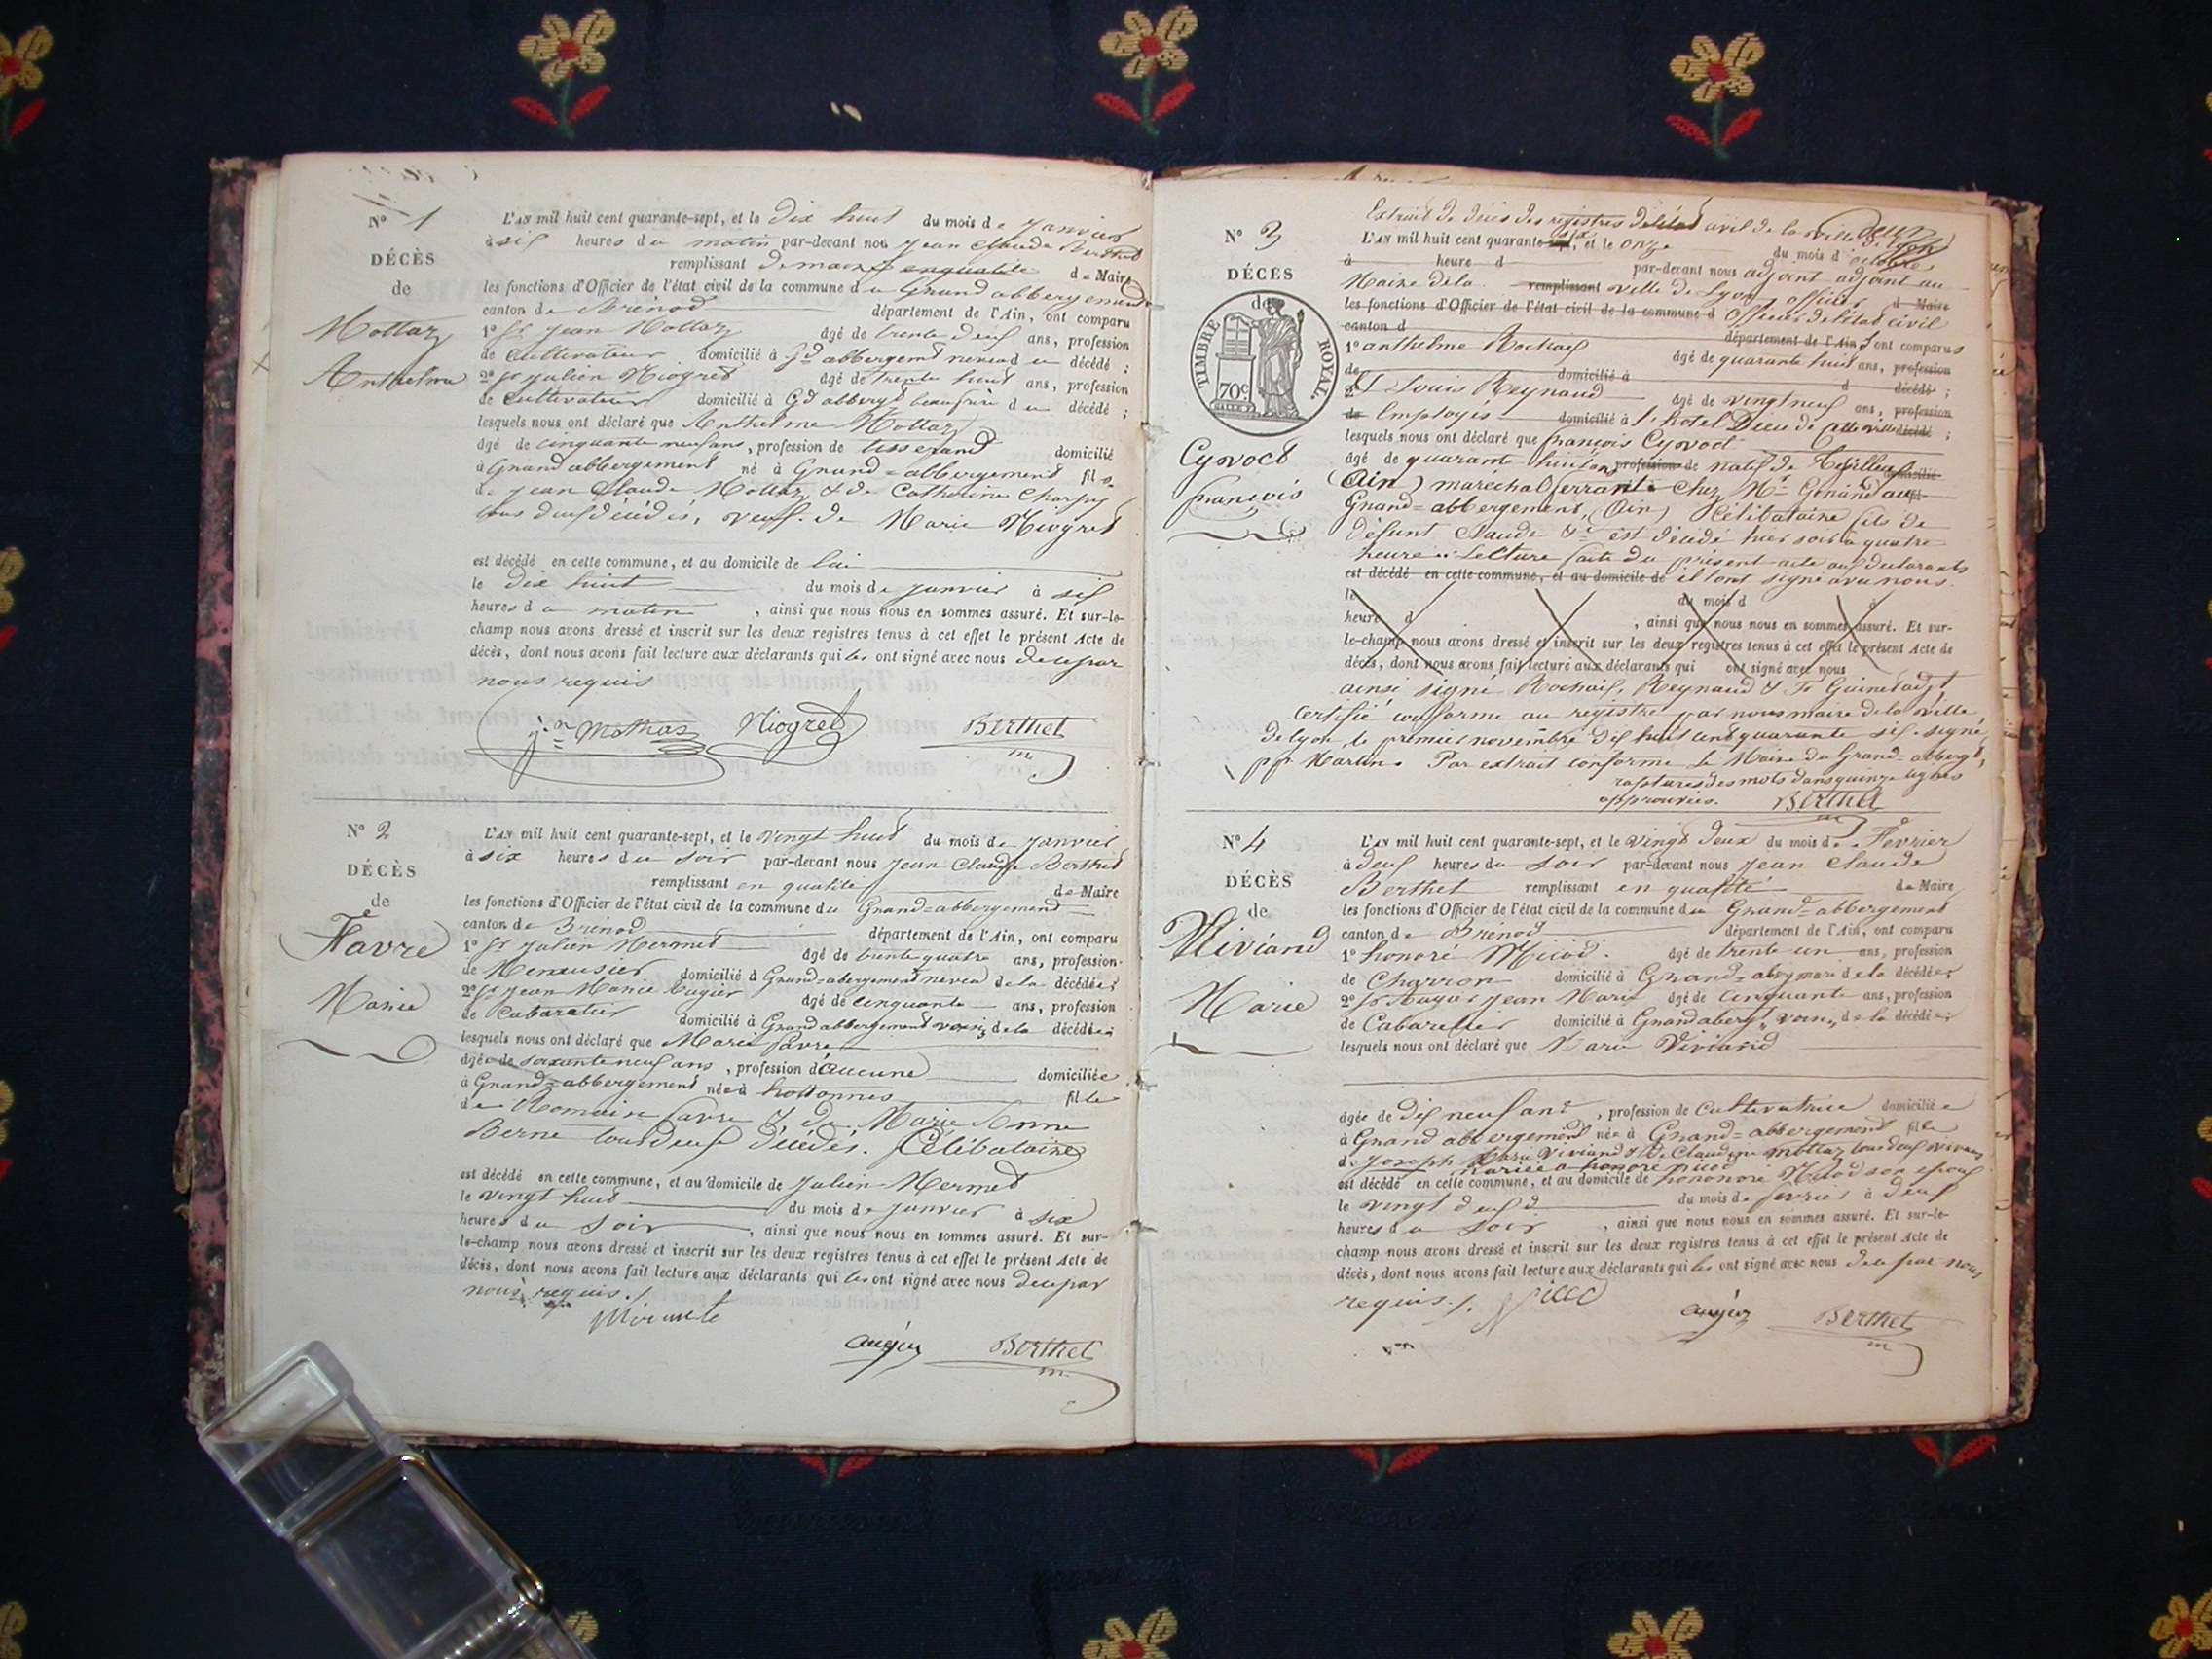 N° 1
DÉCÈS
de
Mottaz
Anthelme
L'AN mil huit cent quarante-sept, et le dix huit du mois de Janvier
à six heures du matin par-devant nous Jean Claude Berthet
remplissant de Maire
les fonctions d'Officier de l'état civil de la commune du Grand abbergement
canton de Brénod département de l'Ain, ont comparu
1° Sr Jean Mottaz âgé de trente deux ans, profession
de cultivateur domicilié à Gd abbergemt neveu du décédé ;
2° Sr Julien Niogret âgé de trente huit ans, profession
de cultivateur domicilié à Gd abbergt beaufrère du décédé ;
lesquels nous ont déclaré que Anthelme Mottaz
âgé de cinquante neuf ans, profession de tisserand domicilié
à Grand abbergement né à Grand=abbergement fils
de Jean Claude Mottaz & de Catherine Charpy
tous deux décédés, veuf de Marie Niogret
est décédé en cette commune, et au domicile de lui
le dix huit du mois de janvier à six
heures du matin, ainsi que nous nous en sommes assuré. Et sur-le-
champ nous avons dressé et inscrit sur les deux registres tenus à cet effet le présent Acte de
décès, dont nous avons fait lecture aux déclarants qui les ont signé avec nous de ce par
nous requis
Niogret Berthet
N° 2
DÉCÈS
de
Favre
Marie
L'AN mil huit cent quarante-sept, et le vingt huit du mois de Janvier
à six heures du soir par-devant nous Jean Claude Berthet
remplissant en qualité de Maire
les fonctions d'Officier de l'état civil de la commune du Grand=abbergement
canton de Brénod département de l'Ain, ont comparu
1° Sr Julien Mermet âgé de trente quatre ans, profession
de Menuisier domicilié à Grand=abergement neveu de la décédée ;
2° Sr Jean Marie Augier âgé de cinquante ans, profession
de Cabaratier domicilié à Grand abbergement voisin de la décédée ;
lesquels nous ont déclaré que Marie favre
âgée de soixante neuf ans, profession d'aucune domiciliée
à Grand=abbergement née à hottonnes fille
de Romain favre & de Marie Anne
Berne tous deux décédés. Célibataire
est décédé en cette commune, et au domicile de Julien Mermet
le vingt huit du mois de janvier à six
heures du soir, ainsi que nous nous en sommes assuré. Et sur-
le-champ nous avons dressé et inscrit sur les deux registres tenus à cet effet le présent Acte de
décès, dont nous avons fait lecture aux déclarants qui les ont signé avec nous de ce par
nous requis ./.
augier Berthet
N° 3
DÉCÈS
de
TIMBRE ROYAL.
70c
Cyvoct
françois
Extrait de décès des registres de l'état civil de la ville de Lyon
L'AN mil huit cent quarante-six, et le onze du mois d'octobre
à heure d par-devant nous adjoint adjoint au
Maire de la remplissant ville de Lyon officier de Maire
les fonctions d'Officier de l'état civil de la commune d officier de l'état civil
canton d département de l'Ain, ont comparus
1° anthelme Rochaix âgé de quarante huit ans, profession
de domicilié à d décédé ;
2° Sr Louis Reynaud âgé de vingt neuf ans, profession
de Employés domicilié à l'hotel Dieu de cette ville décédé ;
lesquels nous ont déclaré que françois Cyvoct
âgé de quarante huit ans profession de natif de domicilié
(Ain) marechal ferrant chez Mr Gonand au
Grand=abbergement, (Ain) Célibataire fils de
défunt Claude & est décédé hier soir à quatre
heure. Lecture faite du présent acte aux déclarants
est décédé en cette commune, et au domicile de il l'ont signé avec nous.
le du mois d à
heure d, ainsi que nous nous en sommes assuré. Et sur-
le-champ nous avons dressé et inscrit sur les deux registres tenus à cet effet le présent Acte de
décès, dont nous avons fait lecture aux déclarants qui ont signé avec nous
ainsi signé Rochaix, Reynaud &
Certifié conforme au registre par nous maire de la ville
de Lyon le premier novembre dix huit cent quarante six. signé
pp Martin. Par extrait conforme Le Maire du Grand=abbergt,
raptures des mots dans quinze lignes
approuvées. Berthet
N° 4
DÉCÈS
de
Viviand
Marie
L'AN mil huit cent quarante-sept, et le vingt deux du mois de Fevrier
à deux heures du soir par-devant nous Jean Claude
Berthet remplissant en qualité de Maire
les fonctions d'Officier de l'état civil de la commune du Grand=abbergement
canton de Brenod département de l'Ain, ont comparu
1° honoré Micod. âgé de trente un ans, profession
de Charron domicilié à Grand=abrgt mari de la décédée ;
2° Sr Augier Jean Marie âgé de Cinquante ans, profession
de Cabaretier domicilié à Grand abergt voisin de la décédée ;
lesquels nous ont déclaré que Marie Viviand
âgée de dix neuf ans, profession de Cultivatrice domiciliée
à Grand abbergement née à Grand=abbergement fille
de Joseph Marie Viviand & de Claudine Mottaz tous deux vivans
mariée a honoré
est décédé en cette commune, et au domicile de hononoré Micod son epoux
le vingt deux du mois de fevrier à deux
heures du soir, ainsi que nous nous en sommes assuré. Et sur-le-
champ nous avons dressé et inscrit sur les deux registres tenus à cet effet le présent Acte de
décès, dont nous avons fait lecture aux déclarants qui les ont signé avec nous de ce par nous
requis ./.
augier Berthet